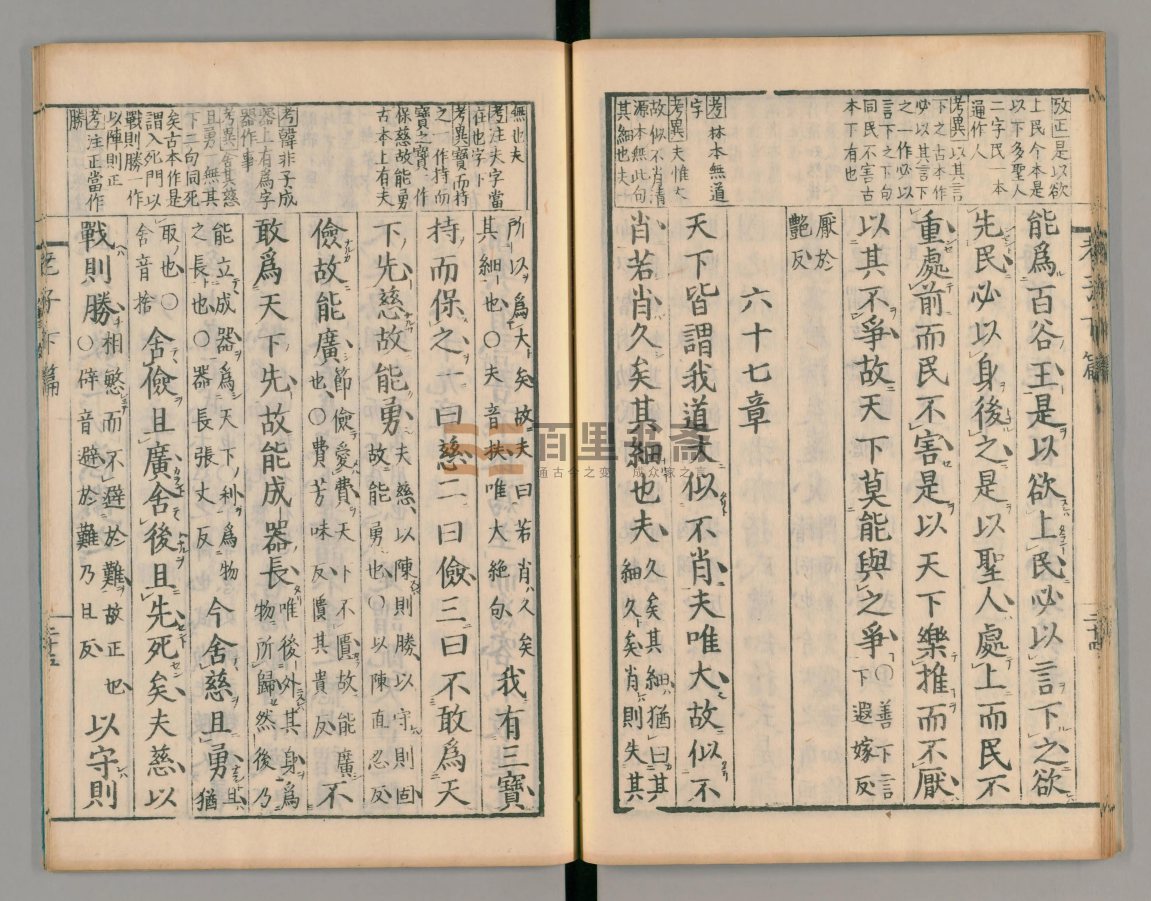 攷正是以欲
上民今本是
以下多聖人
二字民一本
通作人
考異以其言
下之古本作
必以其言下
之一作必以
言下之下句
同民不害古
本下有也
考林本無道
字
考異夫惟大
故似不肖清
源本無此句
其細也夫
能為百谷王是以欲上民必以言下之欲
先民必以身後之是以聖人處上而民不
重處前而民不害是以天下樂推而不厭
以其不爭故天下莫能與之爭
〇善下言
下遐嫁反
厭於
艷反
六十七章
天下皆謂我道大似不肖夫唯大故似不
肖若肖久矣其細也夫
久矣其細猶曰其
細久矣肖則失其
老子下篇
二十四
無也夫
考注夫字當
在也字下
考異寶而持
之一作持而
寶之寶一作
保慈故能勇
古本上有夫
考韓非子成
器上有為字
器作事
考異舍其慈
且勇一無其
下二句同死
矣古本作是
謂入死門以
戰則勝一作
以陣則正
考注正當作
勝
所以為大矣故夫曰若肖久矣
其細也〇夫音扶唯大絶句
我有三寶
持而保之一曰慈二曰儉三曰不敢為天
下先慈故能勇
夫慈以陳則勝以守則固
故能勇也〇以陳直忍反
儉故能廣
節儉愛費天下不匱故能廣
也〇費芳味反匱其貴反
不
敢為天下先故能成器長
唯後外其身為
物所歸然後乃
能立成器為天下利為物
之長也〇器長張丈反
今舍慈且勇
且猶
取也〇
舍音捨
舍儉且廣舍後且先死矣夫慈以
戰則勝
相慜而不避於難故正也
〇辟音避於難乃旦反
以守則
老子下篇
二十五
百里书斋
通古今之变 成众家之言